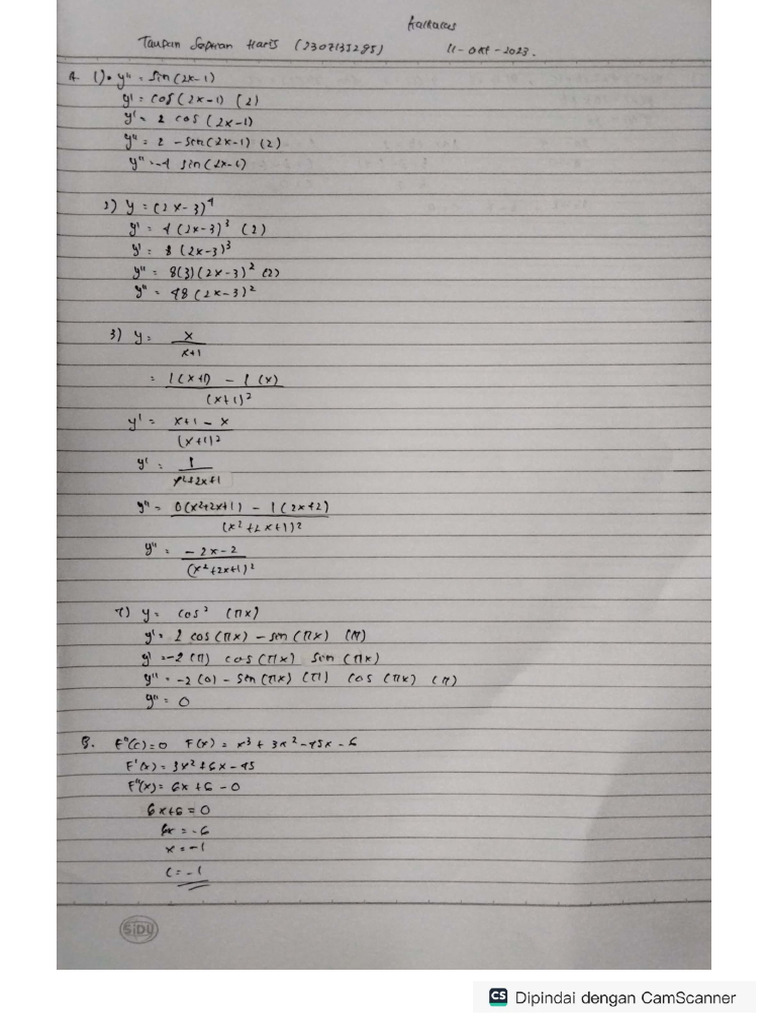 Kalkulus
Taupan Sapwan Haris (2307135285) 11-Okt-2023.
A. 1). y'' = sin(2x-1)
y' = cos(2x-1) (2)
y' = 2 cos (2x-1)
y'' = 2 -sin(2x-1) (2)
y'' = -4 sin(2x-1)
2) y = (2x-3)^4
y' = 4(2x-3)^3 (2)
y' = 8 (2x-3)^3
y'' = 8(3)(2x-3)^2 (2)
y'' = 48 (2x-3)^2
3) y = x/(x+1)
= (1(x+1) - 1(x))/(x+1)^2
y' = (x+1-x)/(x+1)^2
y' = 1/(x^2+2x+1)
y'' = (0(x^2+2x+1) - 1(2x+2))/(x^2+2x+1)^2
y'' = (-2x-2)/(x^2+2x+1)^2
4) y = cos^2 (πx)
y' = 2 cos(πx) - sin(πx) (π)
y' = -2(π) cos(πx) sin(πx)
y'' = -2(0) - sin(πx) (π) cos(πx) (π)
y'' = 0
B. F''(c)=0 F(x) = x^3 + 3x^2 - 45x - 6
F'(x) = 3x^2 + 6x - 45
F''(x) = 6x + 6 - 0
6x+6 = 0
6x = -6
x = -1
c = -1
SiDU
CS Dipindai dengan CamScanner